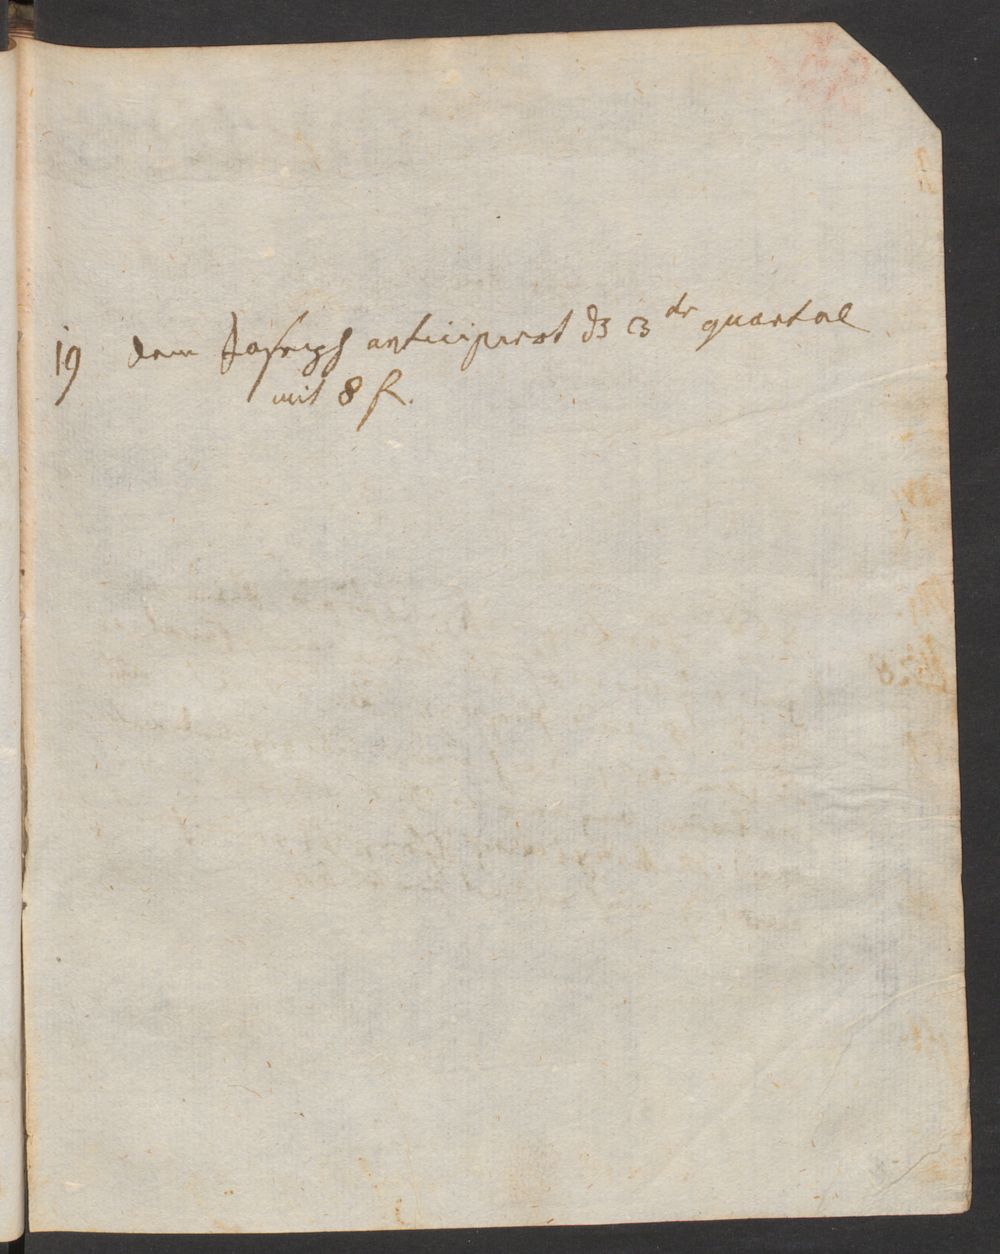 19 dem Joseph anticipirt dz 3te quartal
mit 8 fl.